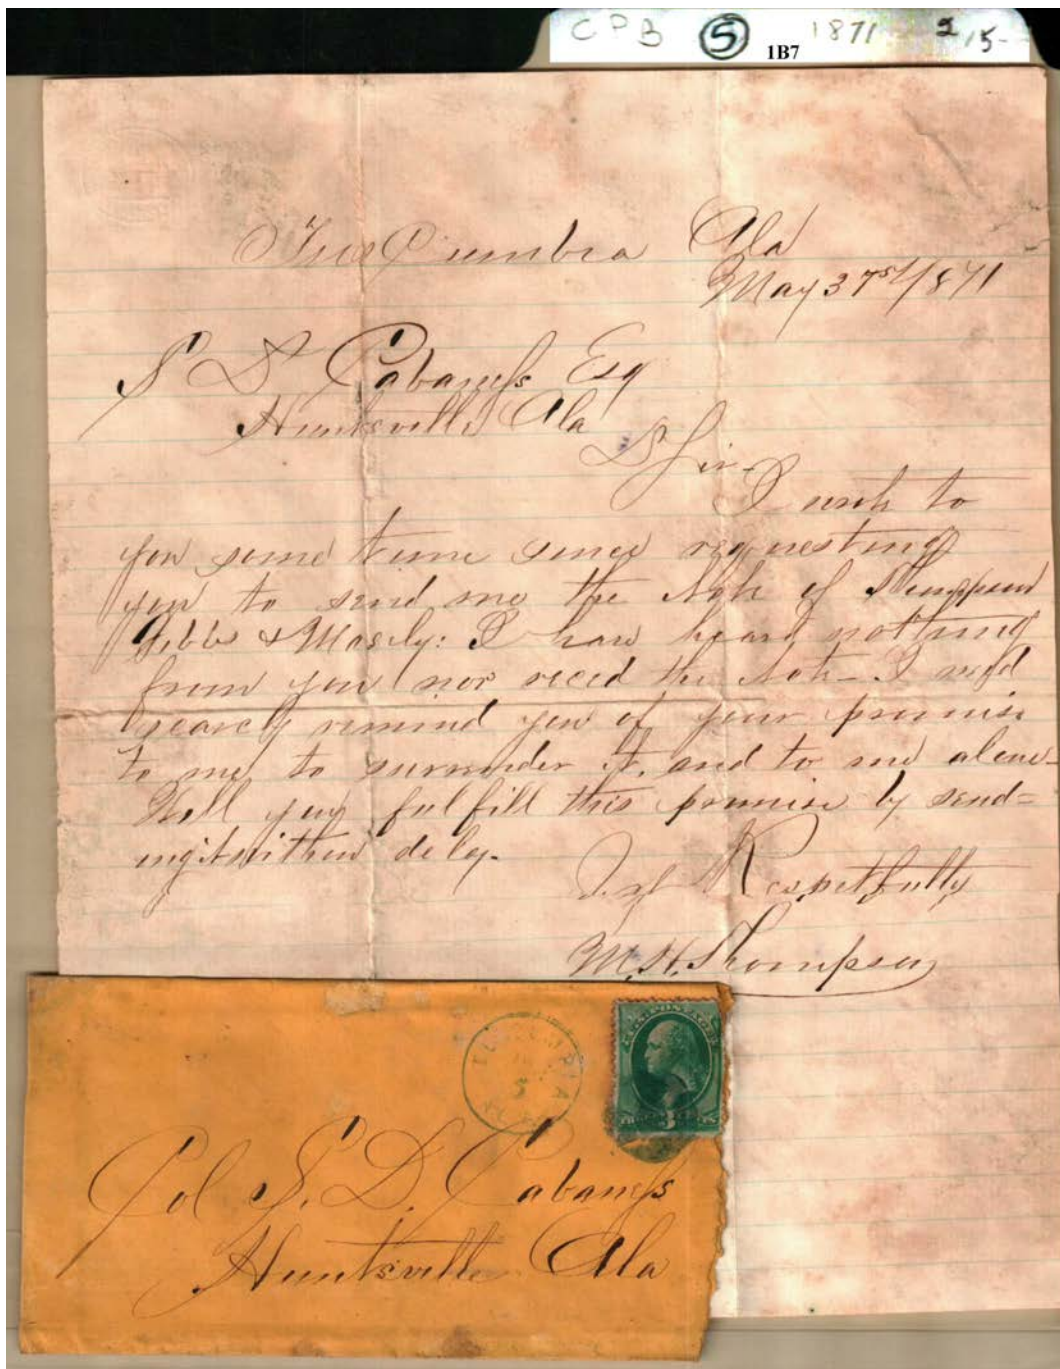 CPB 5 1B7 1871 2/5-
Tuscumbia Ala
May 31st 1871
S D Cabaness Esq
Huntsville Ala
D Sir-
I wrote to
you some time since requesting
you to send me the Note of Thompson
Gibbs & Mosely: I have heard nothing
from you nor recd the Note- I need
scarcely remind you of your promise
to me, to surrender it, and to me alone-
Will you fulfill this promise by send=
ingit without delay.
Respectfully
M. H. Thompson
U.S. POSTAGE
3
Col S. D. Cabaness
Huntsville Ala